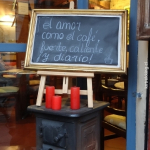 el amor
como el café,
fuerte, caliente
y diario!